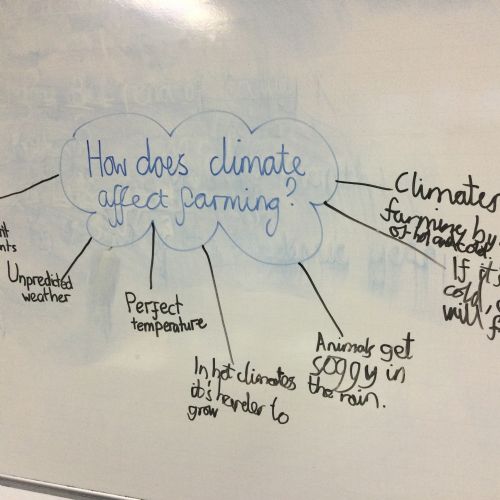 How does climate
affect farming?
Unpredicted
weather
Perfect
temperature
In hot climates
it's harder to
grow
Animals get
soggy in
the rain.
Climates
farming by
of hot and cold.
If it's
cold,
will